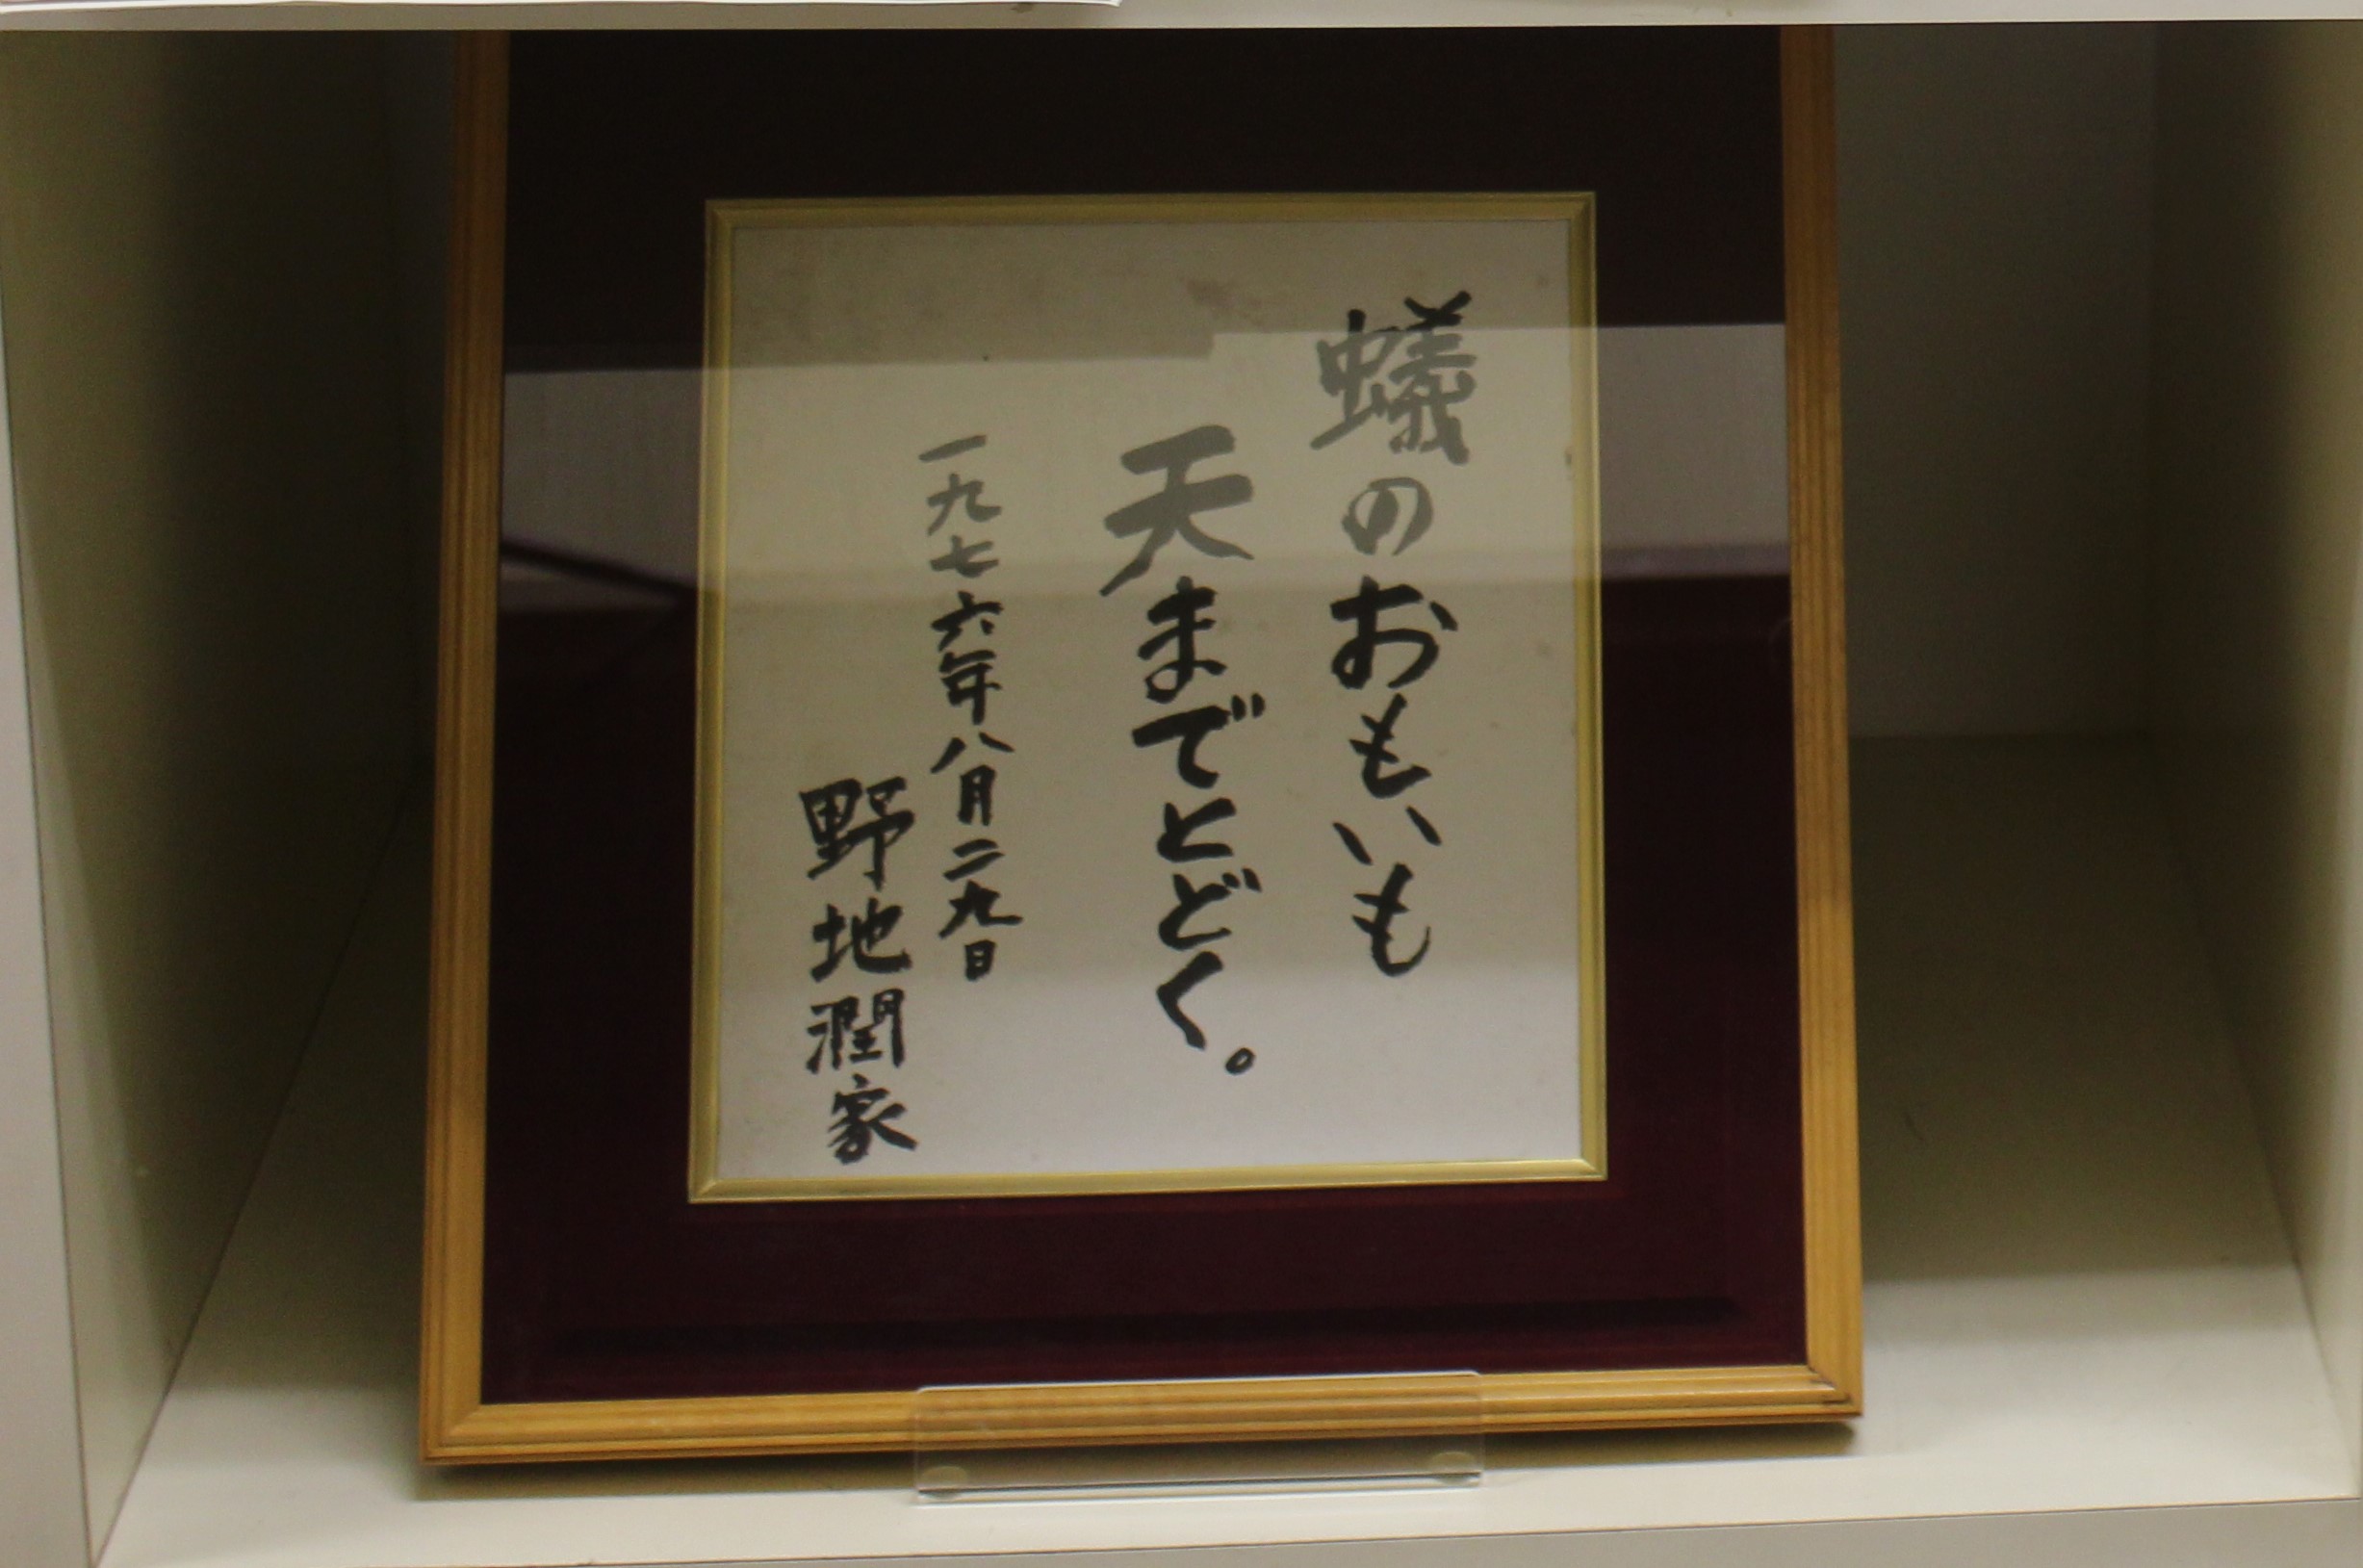 蟻のおもいも
天までとどく。
一九七六年八月二九日
野地潤家